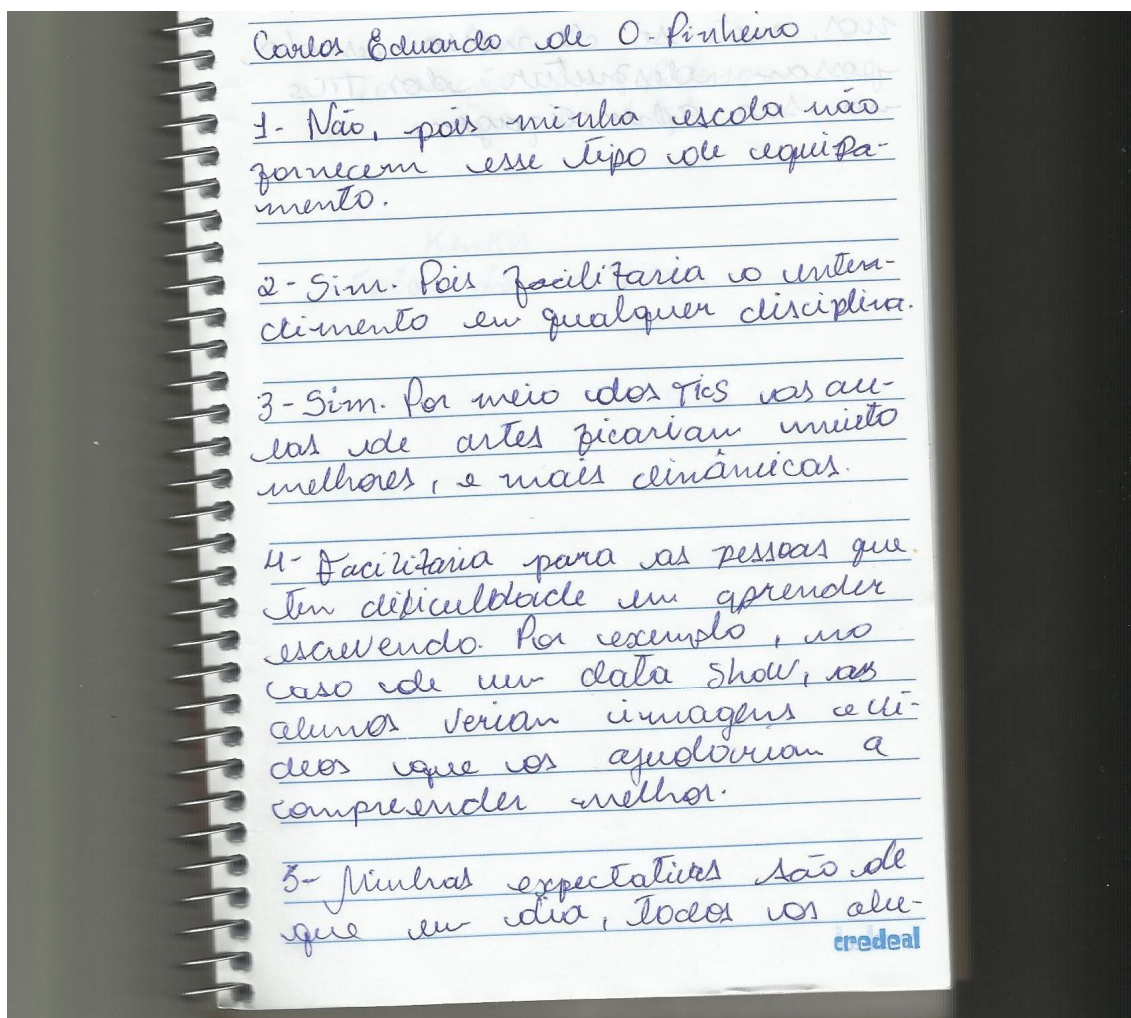 Carlos Eduardo de O. Pinheiro
1- Não, pois minha escola não
fornecem esse tipo de equipa-
mento.
2- Sim. Pois facilitaria o enten-
dimento em qualquer disciplina.
3- Sim. Por meio dos TICs as au-
las de artes ficariam muito
melhores, e mais dinâmicas.
4- Facilitaria para as pessoas que
tem dificuldade em aprender
escrevendo. Por exemplo, no
caso de um data show, os
alunos veriam imagens e ví-
deos que os ajudariam a
compreender melhor.
5- Minhas expectativas são de
que um dia, todos os alu-
credeal